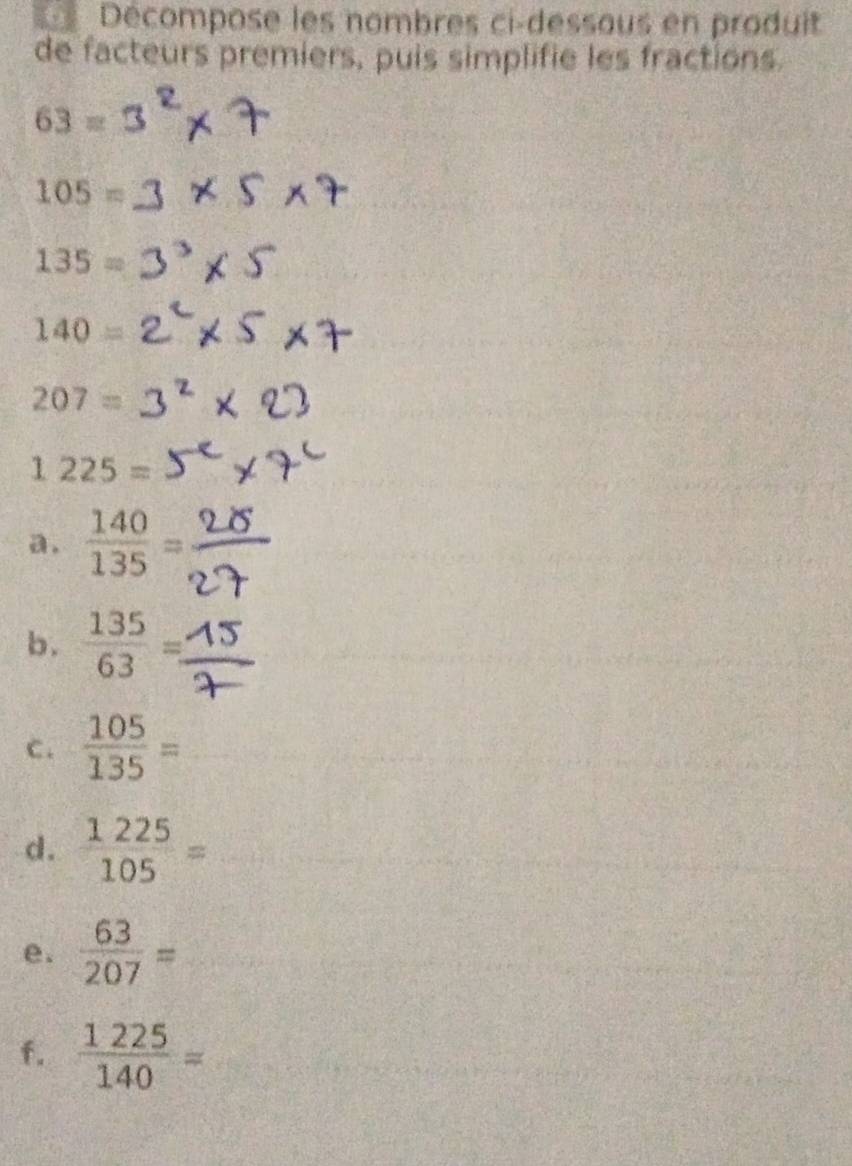 Décompose les nombres ci-dessous en produit
de facteurs premiers, puis simplifie les fractions.
63 = 3² × 7
105 = 3 × 5 × 7
135 = 3³ × 5
140 = 2² × 5 × 7
207 = 3² × 23
1 225 = 5² × 7²
a. 140/135 = 28/27
b. 135/63 = 15/7
c. 105/135 =
d. 1 225/105 =
e. 63/207 =
f. 1 225/140 =